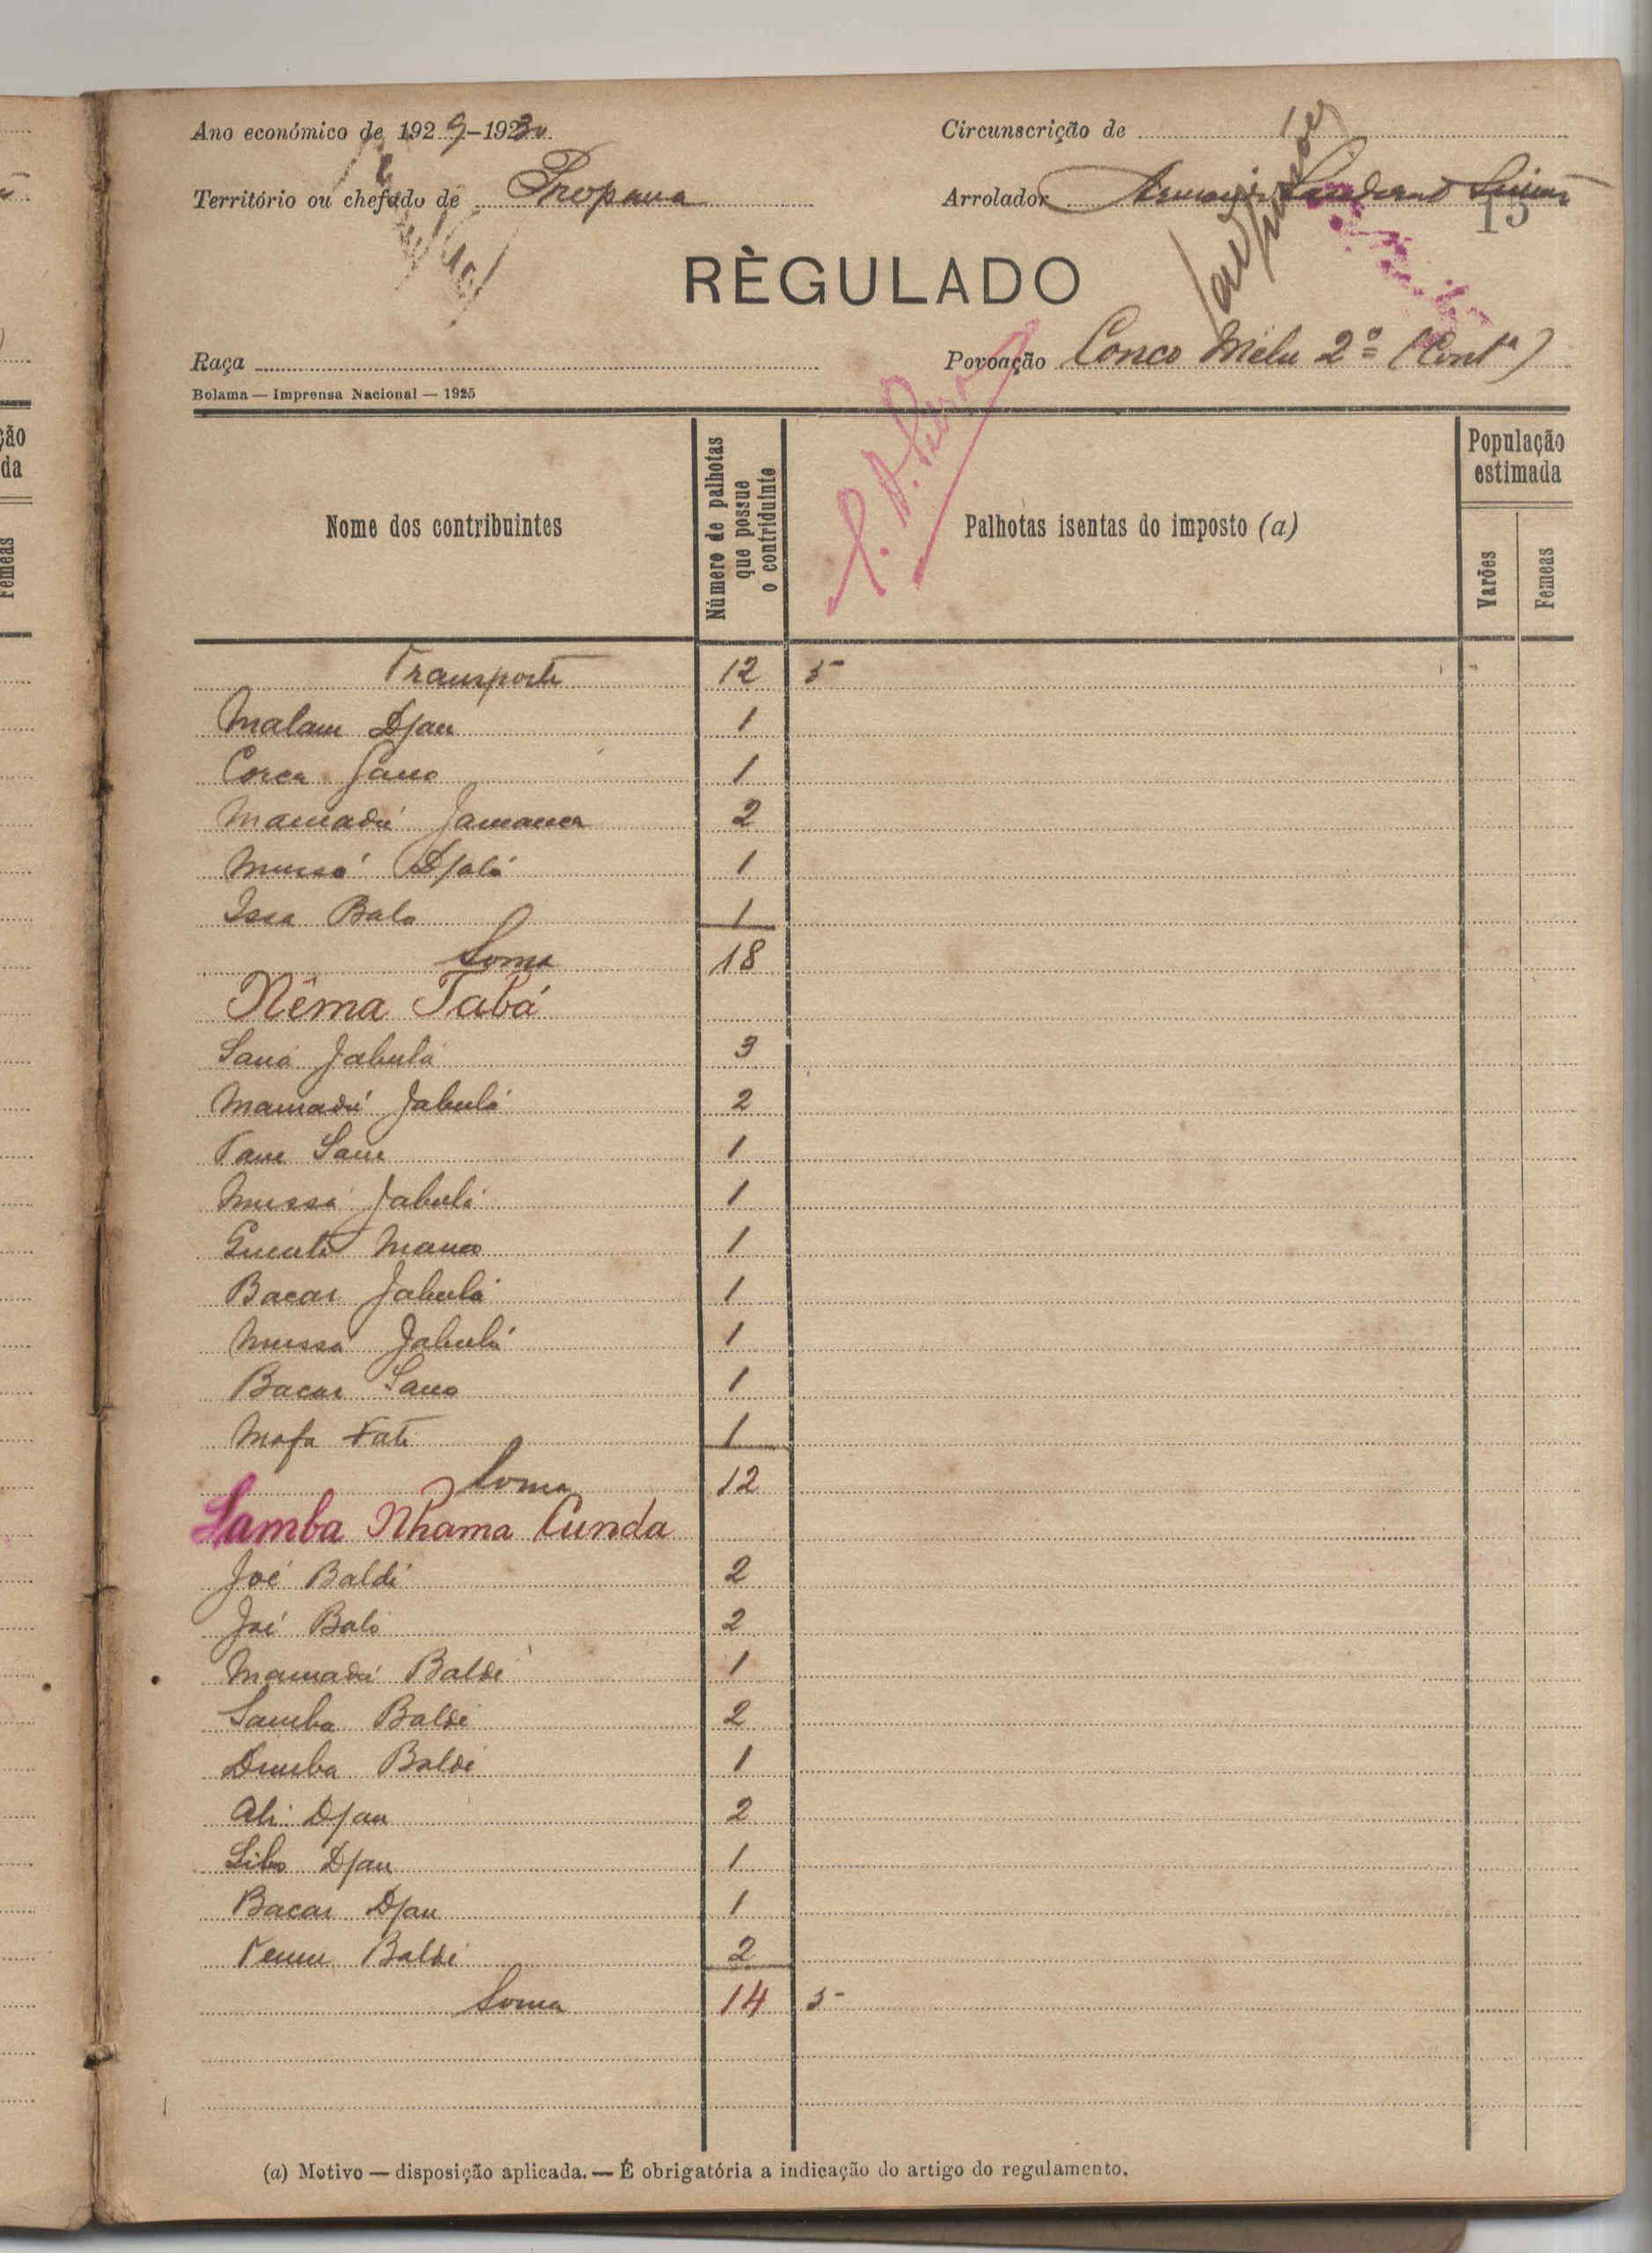 Ano económico de 1929-1930
Circunscrição de
Território ou chefado de Propana
Arrolador
13
RÈGULADO
Raça
Povoação Conco Mélu 2º (Contª)
Bolama — Imprensa Nacional — 1925
Nome dos contribuintes
Número de palhotas que possue o contriduinte
Palhotas isentas do imposto (a)
População estimada
Varões
Femeas
Transporte 12 5
Malam Djau 1
Corca Sano 1
Mamadú Jamanca 2
Mussá Djaló 1
Issa Balo 1
Soma 18
Nêma Tabá
Saná Jabulá 3
Mamadú Jabulá 2
Tam Sam 1
Mussá Jabulá 1
Mané 1
Bacar Jabulá 1
Mussá Jabulá 1
Bacar Sano 1
Mofa Fati 1
Soma 12
Samba Nhama Cunda
Joé Baldé 2
Joé Baló 2
Mamadú Baldé 1
Samba Baldé 2
Demba Baldé 1
Ali Djau 2
Sibo Djau 1
Bacar Djau 1
Baldé 2
Soma 14 5
(a) Motivo — disposição aplicada. — É obrigatória a indicação do artigo do regulamento.